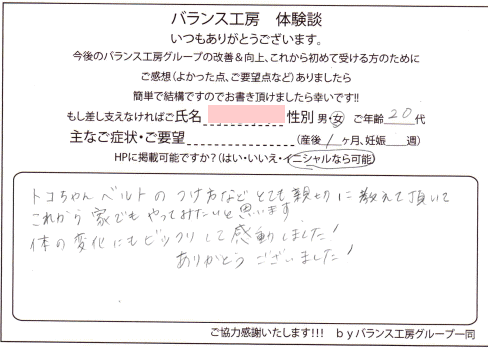 バランス工房 体験談
いつもありがとうございます。
今後のバランス工房グループの改善＆向上、これから初めて受ける方のために
ご感想（よかった点、ご要望点など）ありましたら
簡単で結構ですのでお書き頂けましたら幸いです!!
もし差し支えなければご氏名 性別 男・女 ご年齢 20 代
主なご症状・ご要望 （産後 1 ヶ月、妊娠 週）
HPに掲載可能ですか？（はい・いいえ・イニシャルなら可能）
トコちゃんベルトのつけ方などとても親切に教えて頂いて
これから家でもやってみたいと思います
体の変化にもビックリして感動しました!
ありがとうございました!
ご協力感謝いたします!!! byバランス工房グループ一同